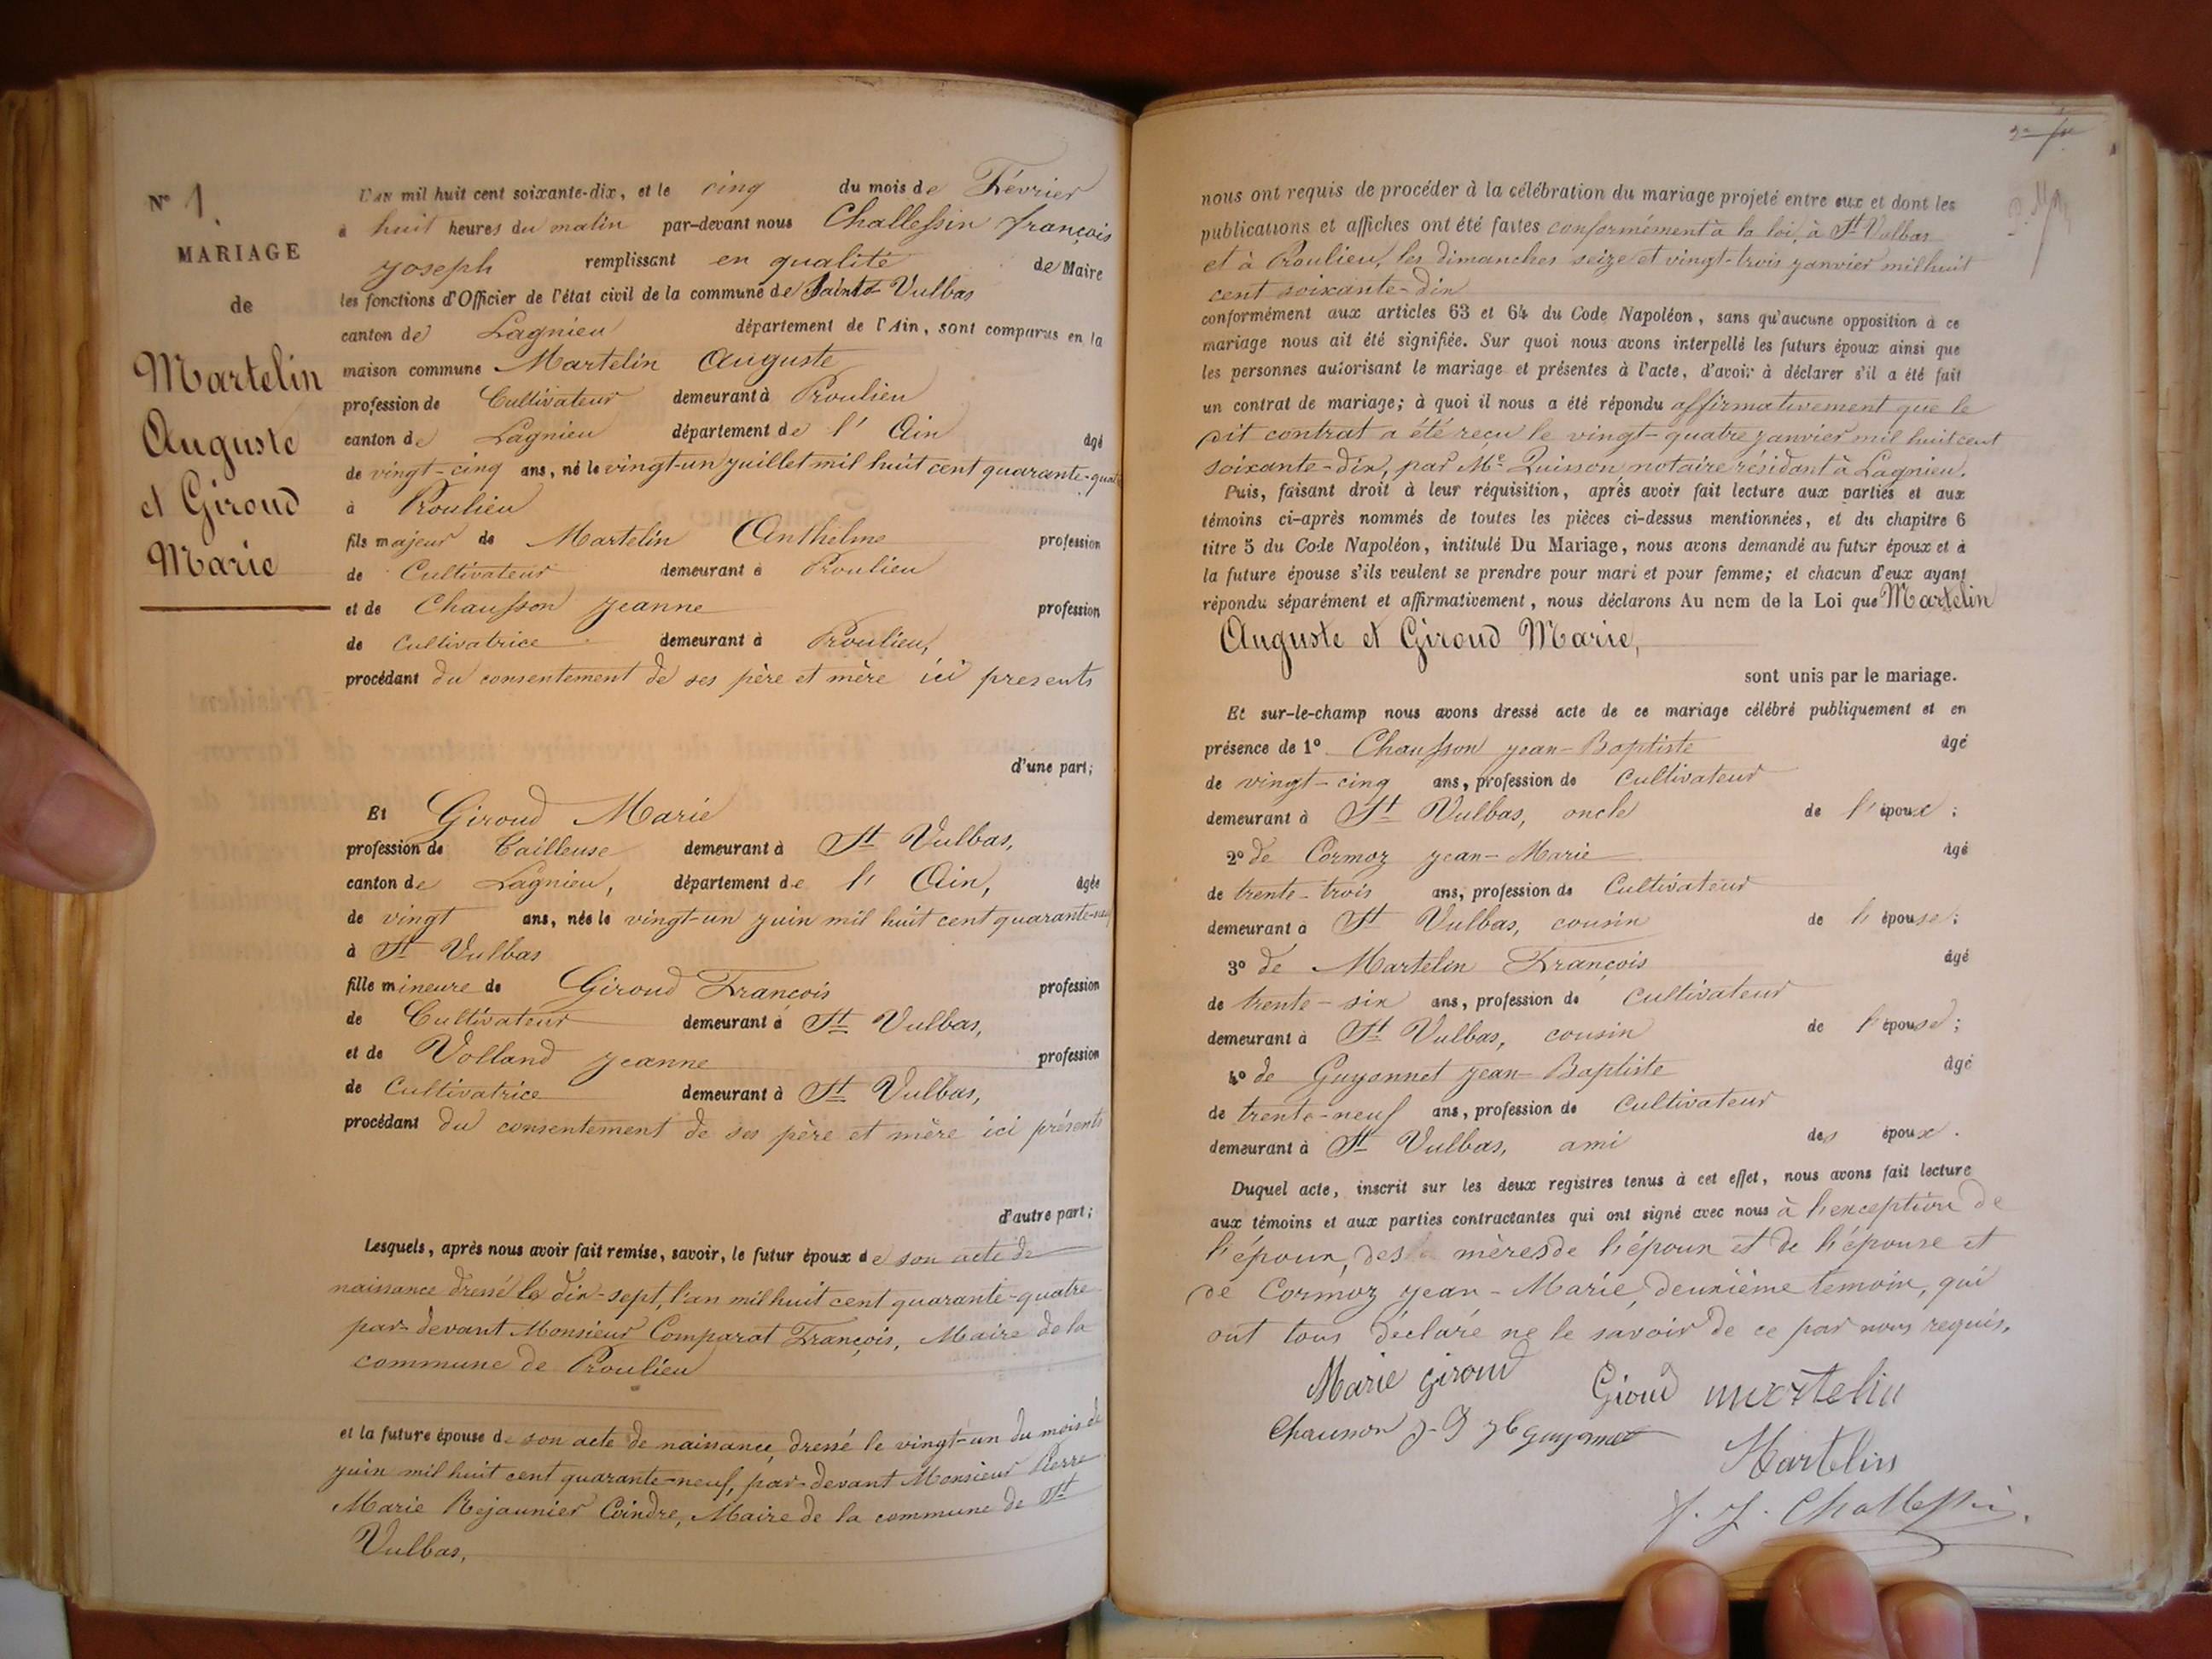 N° 1.
MARIAGE
de
Martelin
Auguste
et Giroud
Marie
L'AN mil huit cent soixante-dix, et le cinq du mois de Février
à huit heures du matin par-devant nous Challessin françois
joseph remplissant en qualité de Maire
les fonctions d'Officier de l'état civil de la commune de Saint Vulbas
canton de Lagnieu département de l'Ain, sont comparus en la
maison commune Martelin Auguste
profession de Cultivateur demeurant à Proulieu
canton de Lagnieu département de l'Ain âgé
de vingt-cinq ans, né le vingt-un juillet mil huit cent quarante-quatre
à Proulieu
fils majeur de Martelin Anthelme profession
de Cultivateur demeurant à Proulieu
et de Chausson jeanne profession
de cultivatrice demeurant à Proulieu,
procédant du consentement de ses père et mère ici presents
d'une part;
Et Giroud Marie
profession de Tailleuse demeurant à St Vulbas,
canton de Lagnieu, département de l'Ain, âgée
de vingt ans, née le vingt-un juin mil huit cent quarante-neuf
à St Vulbas
fille mineure de Giroud François profession
de Cultivateur demeurant à St Vulbas,
et de Volland jeanne profession
de Cultivatrice demeurant à St Vulbas,
procédant du consentement de ses père et mère ici présents
d'autre part;
Lesquels, après nous avoir fait remise, savoir, le futur époux de son acte de
naissance dressé le dix-sept, l'an mil huit cent quarante-quatre
par-devant Monsieur Comparat François, Maire de la
commune de Proulieu
et la future épouse de son acte de naissance, dressé le vingt-un du mois de
juin mil huit cent quarante-neuf, par-devant Monsieur Pierre
Marie Rejaunier Coindre, Maire de la commune de St
Vulbas,
nous ont requis de procéder à la célébration du mariage projeté entre eux et dont les
publications et affiches ont été faites conformément à la loi, à St Vulbas
et à Proulieu, les dimanches seize et vingt-trois janvier mil huit
cent soixante-dix
conformément aux articles 63 et 64 du Code Napoléon, sans qu'aucune opposition à ce
mariage nous ait été signifiée. Sur quoi nous avons interpellé les futurs époux ainsi que
les personnes autorisant le mariage et présentes à l'acte, d'avoir à déclarer s'il a été fait
un contrat de mariage; à quoi il nous a été répondu affirmativement que le
dit contrat a été reçu le vingt-quatre janvier mil huit cent
soixante-dix, par Me Quisson notaire résidant à Lagnieu.
Puis, faisant droit à leur réquisition, après avoir fait lecture aux parties et aux
témoins ci-après nommés de toutes les pièces ci-dessus mentionnées, et du chapitre 6
titre 5 du Code Napoléon, intitulé Du Mariage, nous avons demandé au futur époux et à
la future épouse s'ils veulent se prendre pour mari et pour femme; et chacun d'eux ayant
répondu séparément et affirmativement, nous déclarons Au nom de la Loi que Martelin
Auguste et Giroud Marie,
sont unis par le mariage.
Et sur-le-champ nous avons dressé acte de ce mariage célébré publiquement et en
présence de 1° Chausson jean-Baptiste âgé
de vingt-cinq ans, profession de Cultivateur
demeurant à St Vulbas, oncle de l'époux;
2° de Cormoz jean-Marie âgé
de trente-trois ans, profession de Cultivateur
demeurant à St Vulbas, cousin de l'épouse;
3° de Martelin François âgé
de trente-six ans, profession de Cultivateur
demeurant à St Vulbas, cousin de l'épouse;
4° de Guyonnet jean-Baptiste âgé
de trente-neuf ans, profession de Cultivateur
demeurant à St Vulbas, ami des époux.
Duquel acte, inscrit sur les deux registres tenus à cet effet, nous avons fait lecture
aux témoins et aux parties contractantes qui ont signé avec nous à l'exception de
l'époux, des mères de l'époux et de l'épouse et
de Cormoz jean-Marie, deuxième temoin, qui
ont tous déclaré ne le savoir de ce par nous requis.
Marie giroud Gioud martelin
Chausson J-B
Martelin
f. J. Challessin.